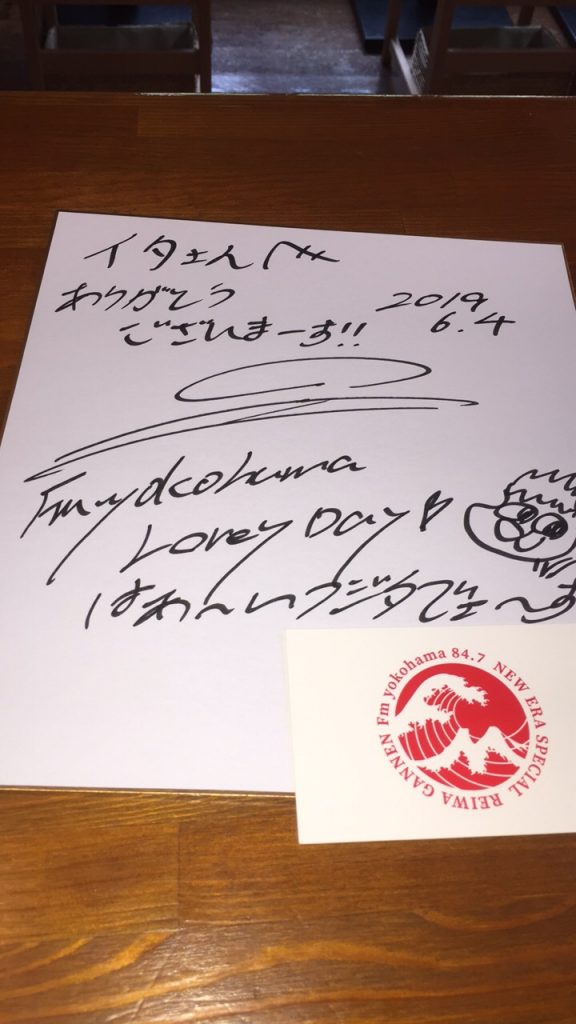 イタさんへ
ありがとう
ございまーす!!
2019
6.4
Fmyokohama
Lovey Day
はあ〜いフジタでェ〜す
Fm yokohama 84.7 NEW ERA SPECIAL REIWA GANNEN